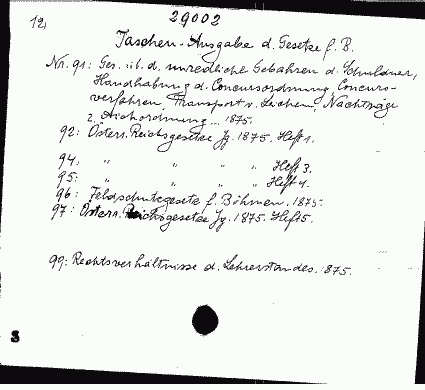 12,
29002
Taschen-Ausgabe d. Gesetze f. B.
Nr. 91: Ges. üb. d. unredliche Gebahren d. Schuldner,
Handhabung d. Concursordnung, Concurs-
verfahren, Transport v. Leichen, Nachträge
z. Aichordnung... 1875.
92: Österr. Reichsgesetze Jg. 1875. Heft 1.
94. " " " " Heft 3.
95: " " " " Heft 4.
96: Feldschutzgesetz f. Böhmen. 1875.
97: Österr. Reichsgesetze Jg. 1875. Heft 5.
99: Rechtsverhältnisse d. Lehrerstandes. 1875.
S